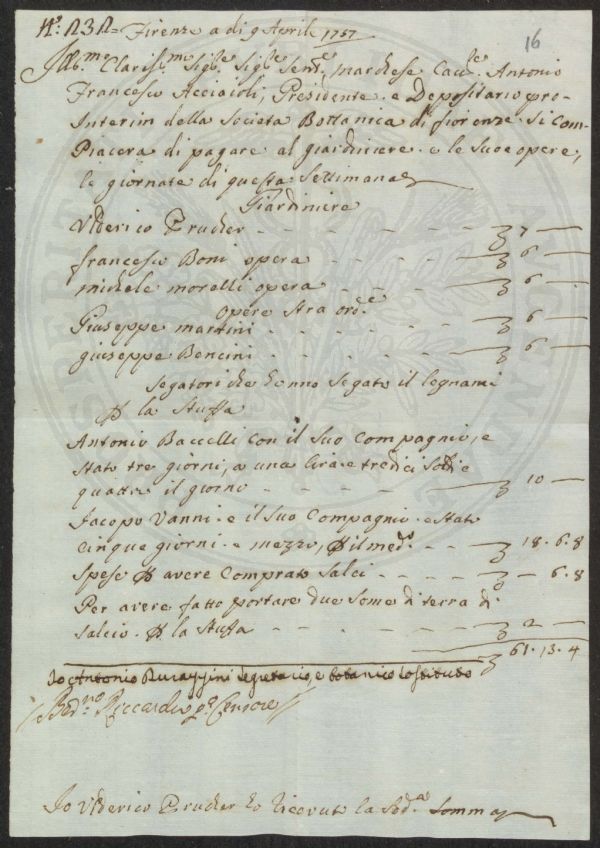 Nº. 232= Firenze a di 9 Aprile 1757
16
Ill.mo Clariss.mo Sig.e Sig.e Sen.e, Marchese Cav.e Antonio
Francesco Acciaioli, Presidente. e Depositario pro-
Interim della Società Bottanica di fiorenze. Si Com-
Piacera di pagare al giardiniere. e le Sue opere,
le giornate di questa Settimana
Giardiniere
Vlderico Prucher - - - - - - 7 —
francesco Boni opera - - - - 6 —
michele morelli opera - - - - 6 —
Opere stra ord.e
Giuseppe martini - - - - - 6 —
giuseppe Bencini - - - - - 6 —
Segatori che hanno Segato il legnami
P la Stuffa
Antonio Baccelli Con il Suo Compagnio, e
Stato tre giorni, a una lira e tredici Soldi e
quattr il giorno - - - - 10 —
Jacopo Vanni. e il Suo Compagnio. e Stato
Cinque giorni. e mezzo, P il med.o - - 18. 6. 8
Spese P avere Comprato Salci - - - — 6. 8
Per avere fatto portare due Some di terra di
Salcio. P la Stuffa - - - - 2 —
61. 13. 4
Io Antonio Durazzini Segretario, e botanico Sostituto
Bed.no Riccardi p.e Censore
Io Vlderico Prucher ho Ricevuto la Sod.a Somma